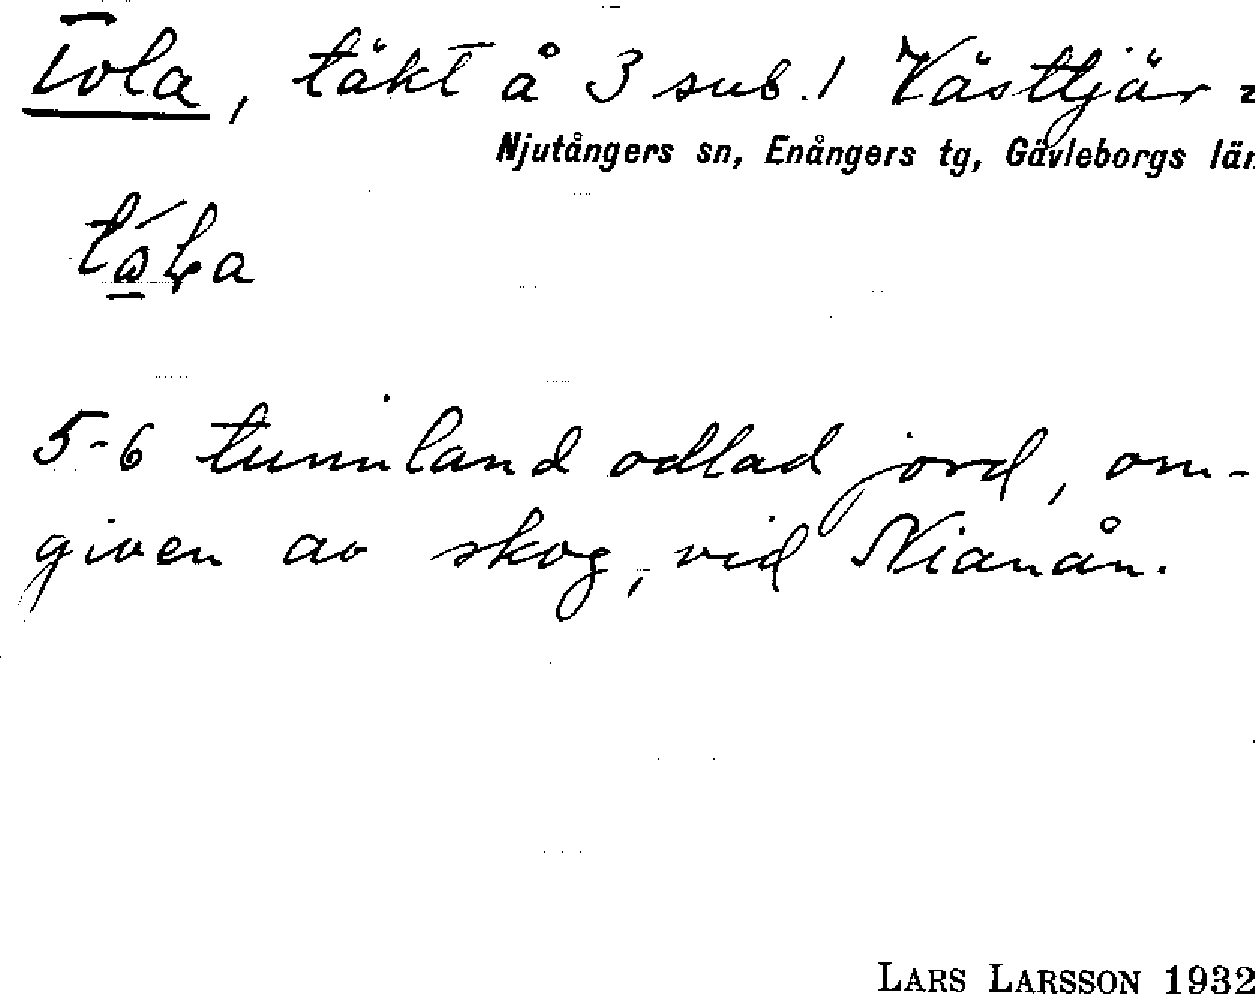 Tola, täkt å 3 sub.! Västtjär=
Njutångers sn, Enångers tg, Gävleborgs län
5-6 tunnland odlad jord, om-
given av skog, vid Nianån.
LARS LARSSON 1932